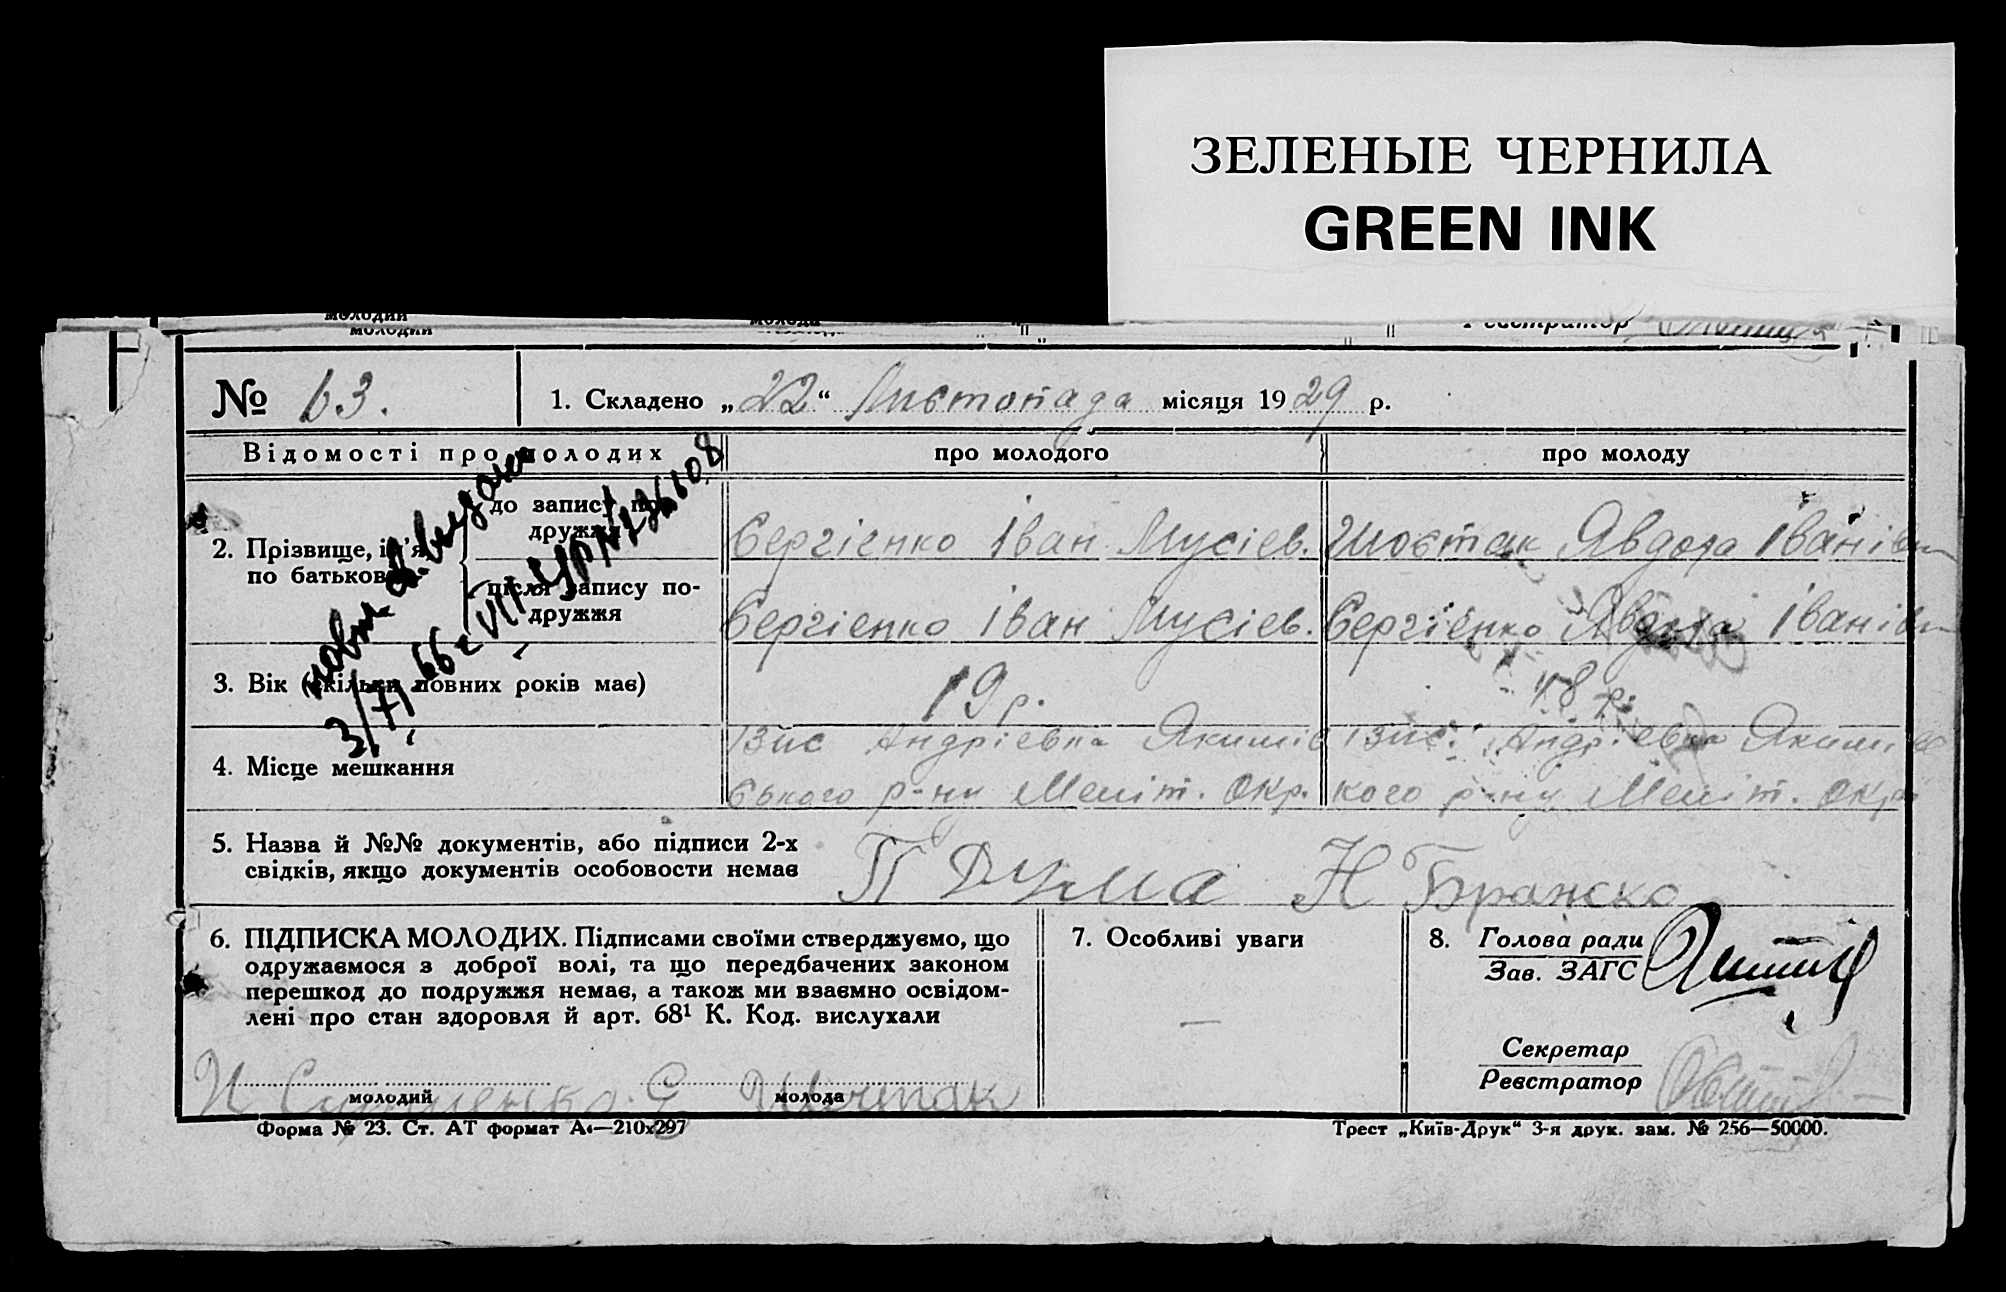 ЗЕЛЕНЫЕ ЧЕРНИЛА
GREEN INK
молодий
молодий
молода
Реєстратор
№ 63.
1. Складено „22“ Листопада місяця 1929 р.
Відомості про молодих
про молодого
про молоду
2. Прізвище, ім'я по батькові
до запису подружжя
Сергієнко Іван Мусієв.
Шостак Явдоха Іванівн
після запису подружжя
Сергієнко Іван Мусієв.
Сергієнко Явдоха Іванівн
3. Вік (скільки повних років має)
19 р.
18 р.
4. Місце мешкання
Андрієвка Якимів
ського р-ну Меліт. Окр.
Андрієвка Якимівс
кого р-ну Меліт. Окр.
5. Назва й №№ документів, або підписи 2-х
свідків, якщо документів особовости немає
П Дума Н Бражко
6. ПІДПИСКА МОЛОДИХ. Підписами своїми стверджуємо, що
одружаємося з доброї волі, та що передбачених законом
перешкод до подружжя немає, а також ми взаємно освідом-
лені про стан здоровля й арт. 68¹ К. Код. вислухали
молодий
Є Шостак
молода
7. Особливі уваги
—
8. Голова ради
Зав. ЗАГС
Секретар
Реєстратор
Форма № 23. Ст. АТ формат А4—210х297
Трест „Київ-Друк“ 3-я друк. зам. № 256—50000.